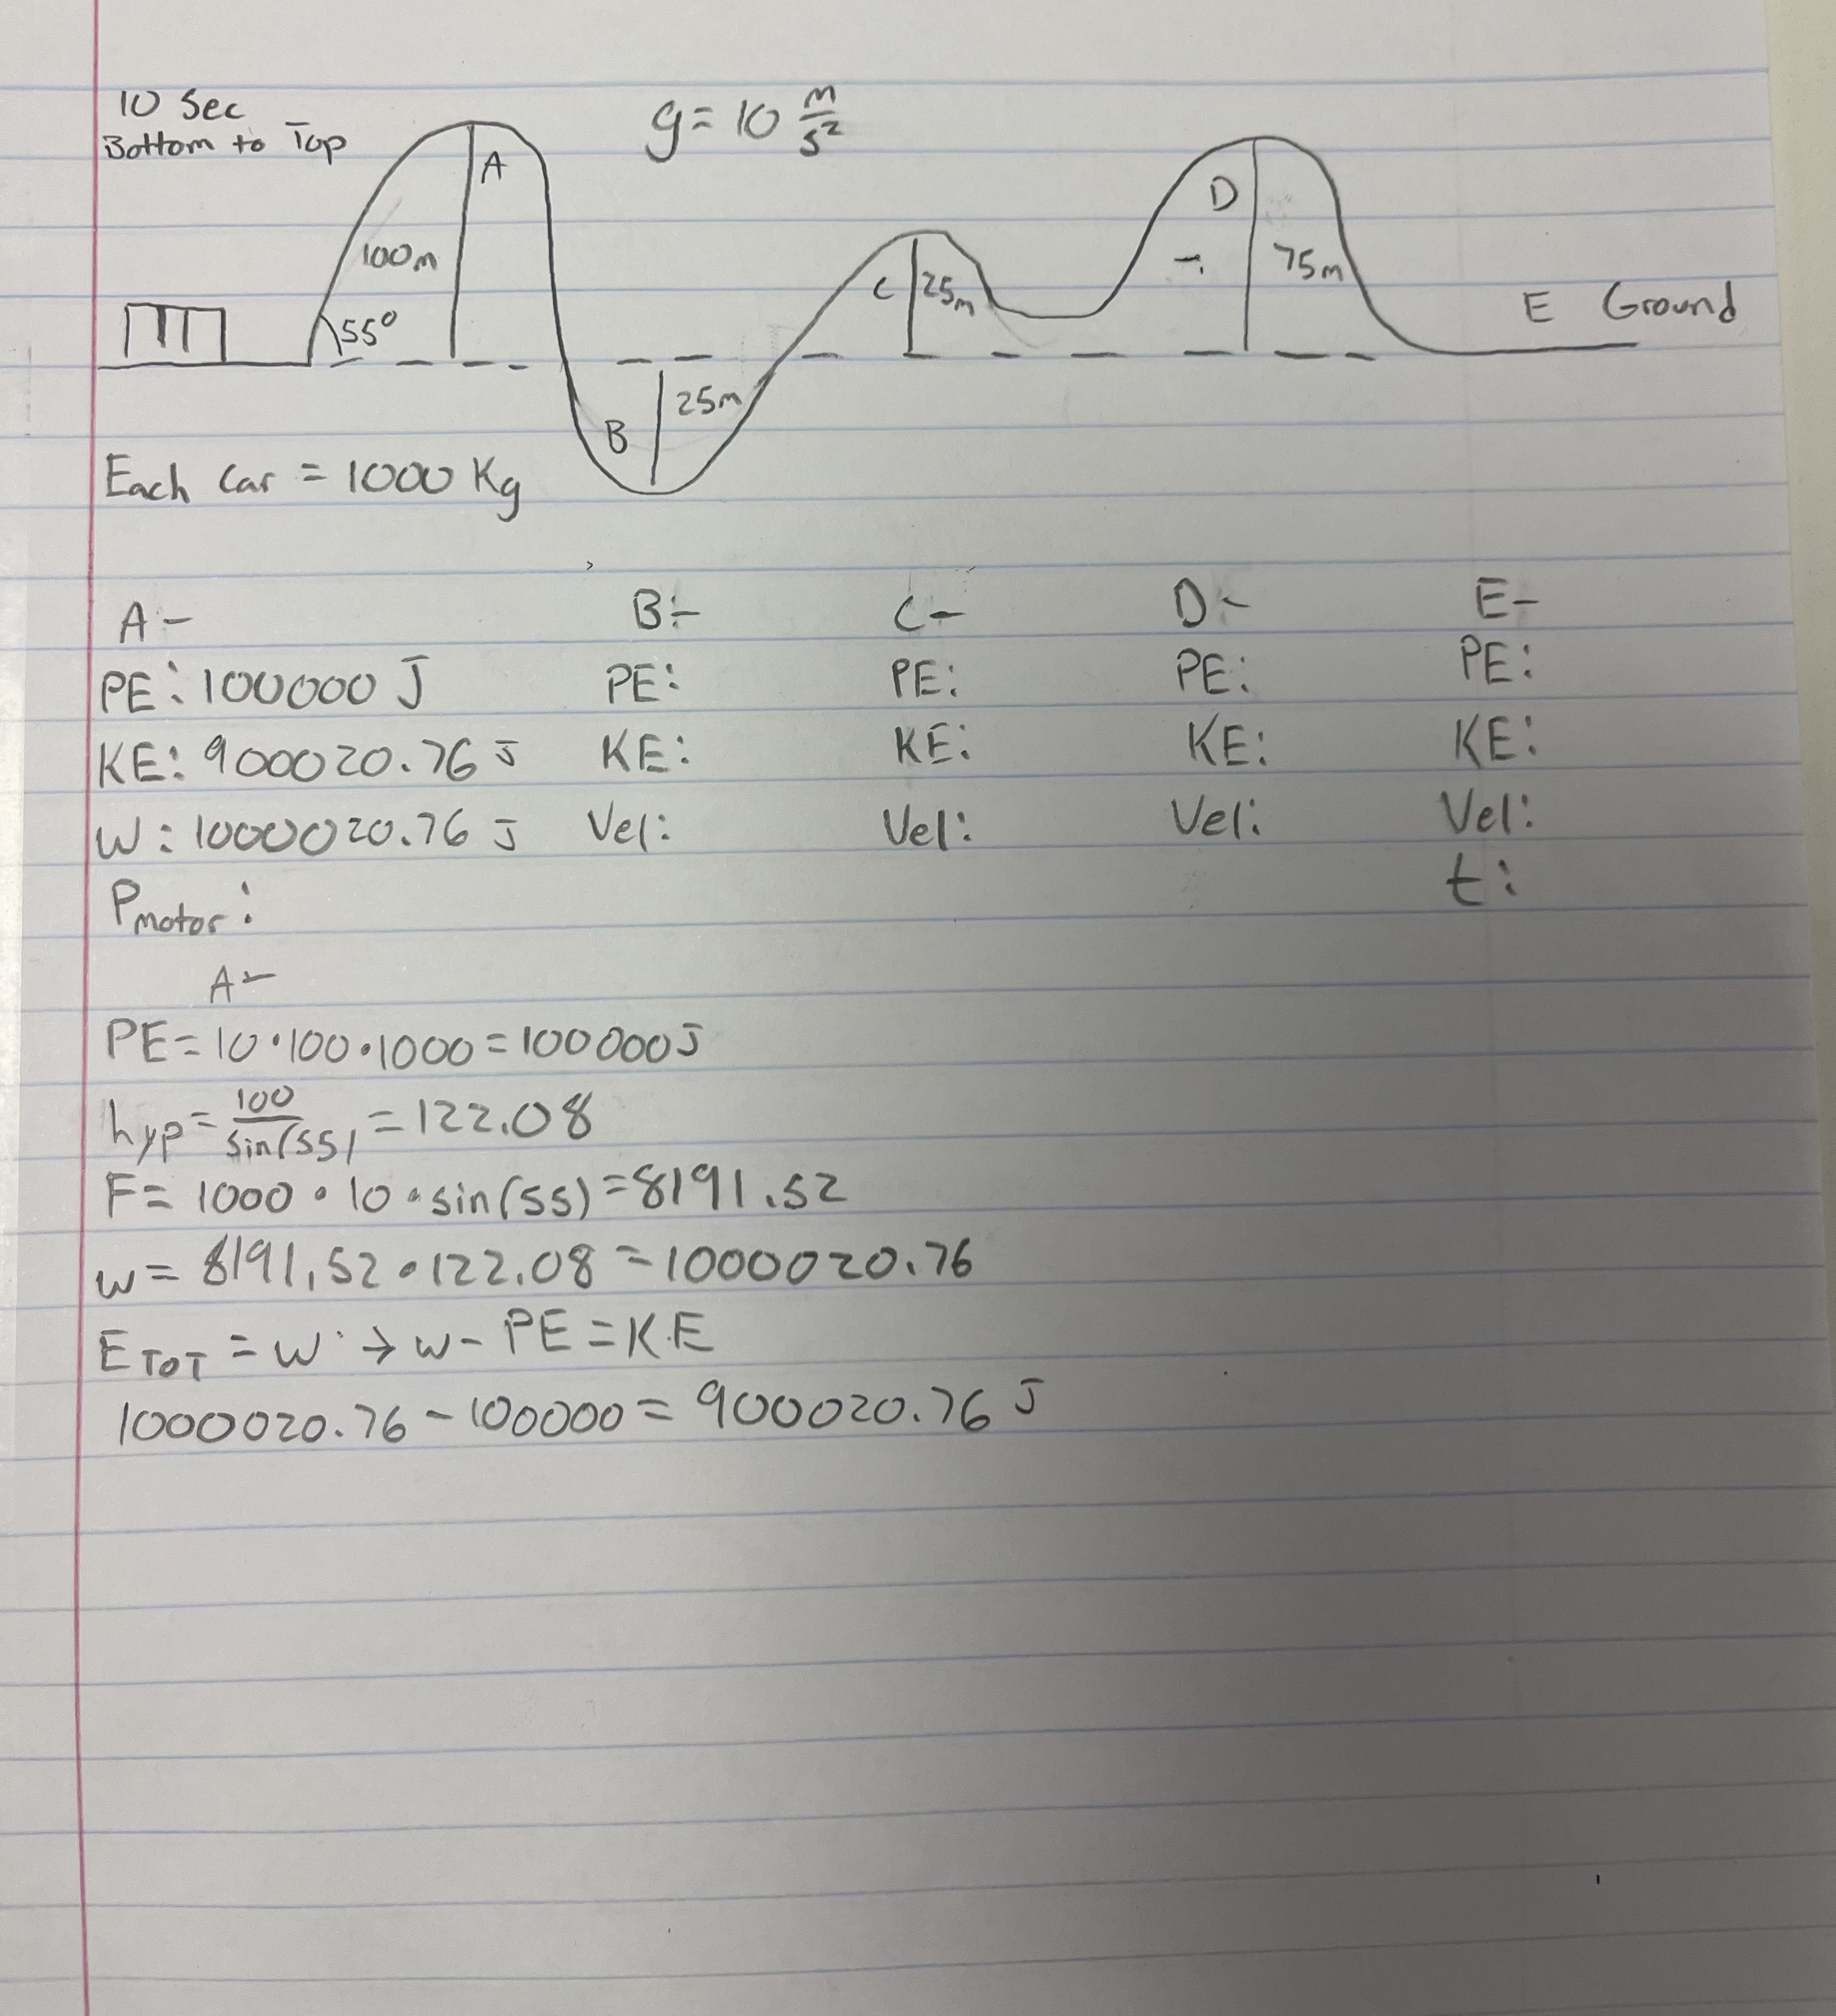 10 Sec
Bottom to Top
g = 10 m/s²
A
100m
55°
B
25m
C
25m
D
75m
E Ground
Each Car = 1000 Kg
A- B:- C- D:- E-
PE: 100000 J PE: PE: PE: PE:
KE: 900020.76 J KE: KE: KE: KE:
W: 1000020.76 J Vel: Vel: Vel: Vel:
Pmotor: t:
A-
PE = 10·100·1000 = 100000J
hyp = 100/sin(55) = 122.08
F = 1000 · 10 · sin(55) = 8191.52
w = 8191.52 · 122.08 = 1000020.76
ETOT = W → w - PE = KE
1000020.76 - 100000 = 900020.76 J